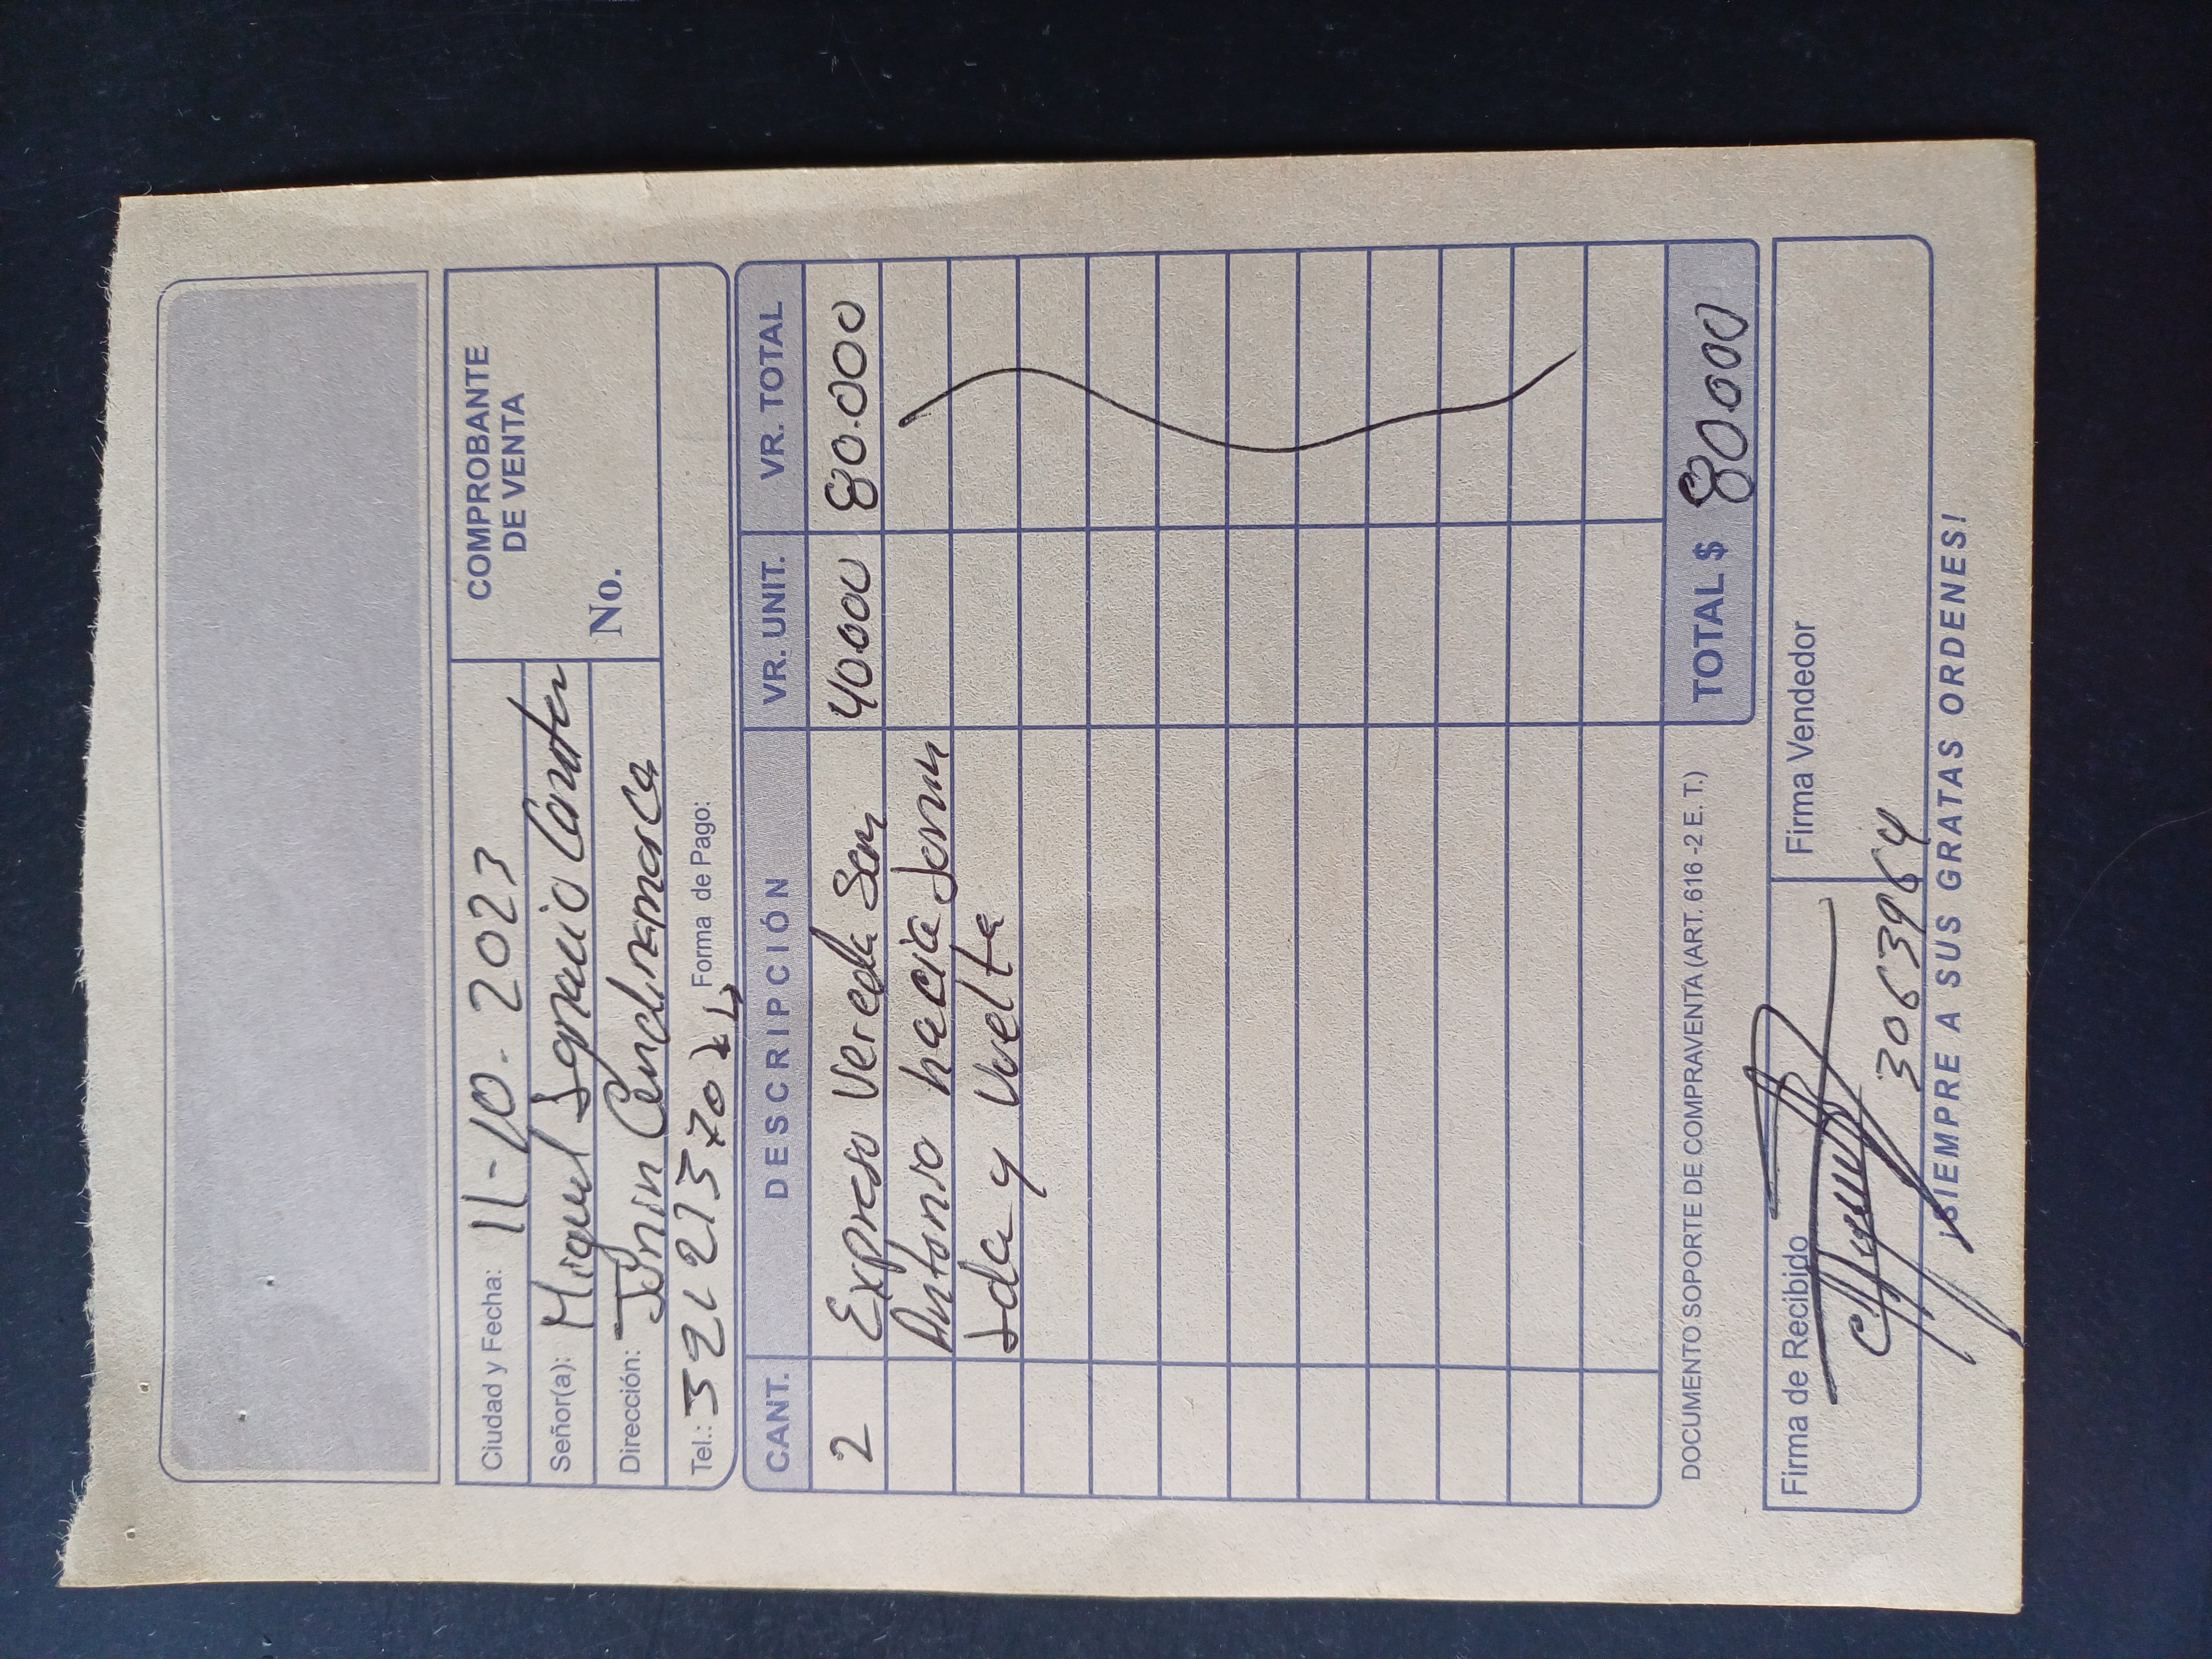 COMPROBANTE
DE VENTA
No.
Ciudad y Fecha: 11-10-2023
Señor(a): Miguel Ignacio
Dirección: Junin Cundinamarca
Tel.: Forma de Pago:
CANT. DESCRIPCIÓN VR. UNIT. VR. TOTAL
2 Expreso Vereda San 40000 80.000
Antonio hacia Junin
Ida y Vuelta
DOCUMENTO SOPORTE DE COMPRAVENTA (ART. 616 -2 E. T.) TOTAL $ 80.000
Firma de Recibido Firma Vendedor
3063964
¡SIEMPRE A SUS GRATAS ORDENES!